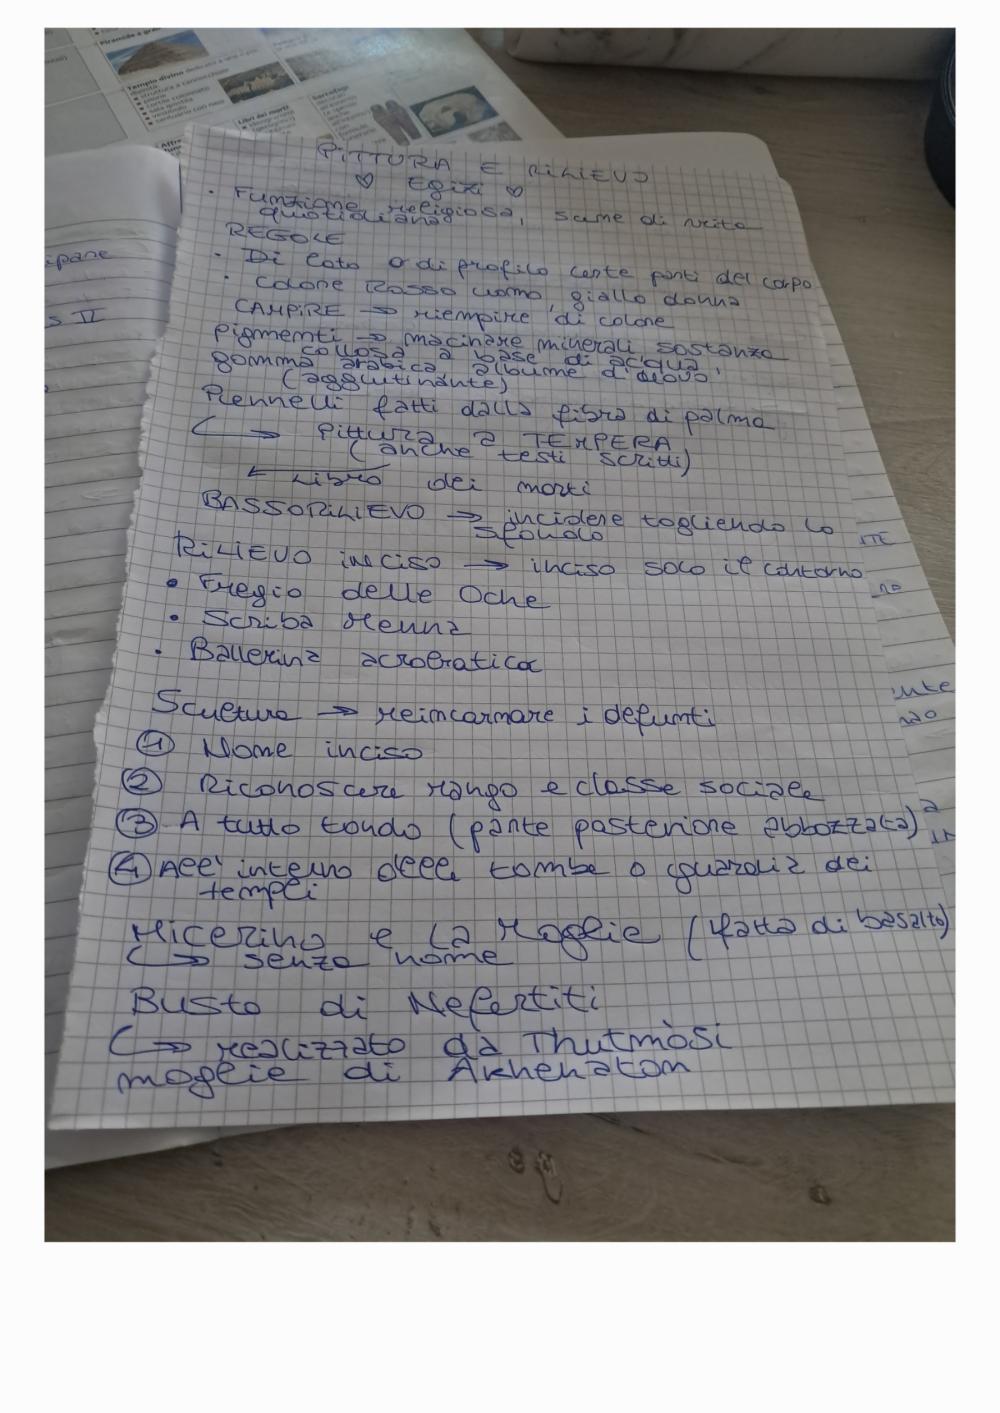 Piramide a gra
Tempio divino
Libri dei morti
Sarcofago
ipane
s II
PITTURA E RILIEVO
♡ Egizi ♡
• Funzione religiosa, scene di vita
quotidiana
REGOLE
• Di lato o di profilo certe parti del corpo
• Colore Rosso uomo, giallo donna
CAMPIRE → riempire di colore
Pigmenti → macinare minerali sostanza
collosa a base di acqua,
gomma arabica, albume d'uovo
(agglutinante)
Pennelli fatti dalla fibra di palma
↳ Pittura a TEMPERA
(anche testi scritti)
← Libro dei morti
BASSORILIEVO → incidere togliendo lo
sfondo
RILIEVO inciso → inciso solo il contorno
• Fregio delle Oche
• Scriba Henna
• Ballerina acrobatica
Scultura → reincarnare i defunti
① Nome inciso
② Riconoscere rango e classe sociale
③ A tutto tondo (parte posteriore abbozzata)
④ All'interno delle tombe o guardia dei
templi
Micerino e la Moglie (fatta di basalto)
↳ senza nome
Busto di Nefertiti
↳ realizzato da Thutmòsi
moglie di Akhenaton